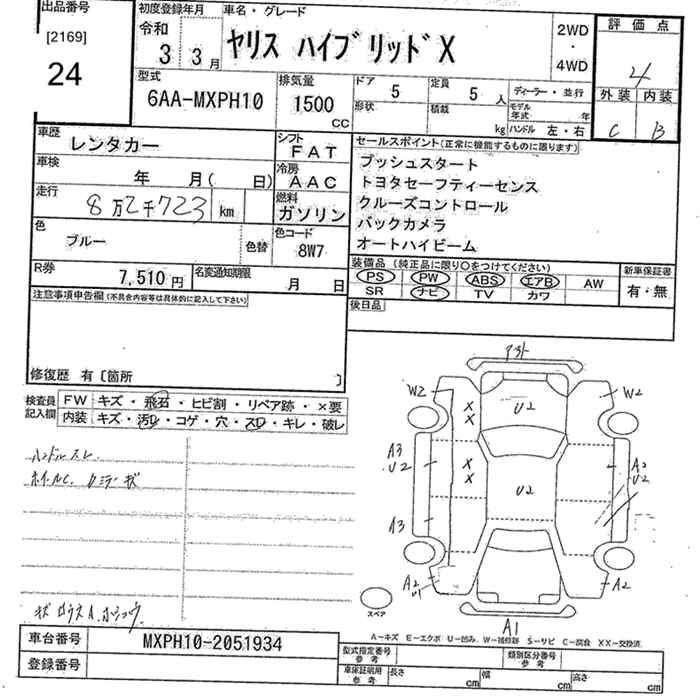 出品番号
[2169]
24
初度登録年月
令和
3 3月
車名・グレード
ヤリス ハイブリッド X
2WD
・
4WD
評価点
4
外装 内装
C B
型式
6AA-MXPH10
排気量
1500
CC
ドア 5
形状
定員 5 人
積載 kg
ディーラー・並行
モデル年式 年
ハンドル 左・右
車歴
レンタカー
シフト
FAT
車検
年 月( 日)
冷房
AAC
走行
8万2千723 km
燃料
ガソリン
色
ブルー
色替
色コード
8W7
R券
7,510円
名変通知期限
月 日
セールスポイント(正常に機能するものに限ります)
プッシュスタート
トヨタセーフティーセンス
クルーズコントロール
バックカメラ
オートハイビーム
装備品(純正品に限り○をつけてください)
PS PW ABS エアB AW
SR ナビ TV カワ
新車保証書
有・無
後日品
注意事項申告欄(不具合内容等は具体的に記入して下さい)
修復歴 有〔箇所 〕
検査員
記入欄
FW キズ・飛石・ヒビ割・リペア跡・×要
内装 キズ・汚れ・コゲ・穴・スレ・キレ・破レ
ハンドルスレ
ホイールC
W2
W2
U2
X
X
A3
U2
X
X
U2
A2
U2
A3
A2
A2
A1
スペア
A-キズ E-エクボ U-凹み W-補修跡 S-サビ C-腐食 XX-交換済
車台番号
MXPH10-2051934
登録番号
型式指定番号
参考
類別区分番号
参考
車庫証明用
参考
長さ cm
幅 cm
高さ cm